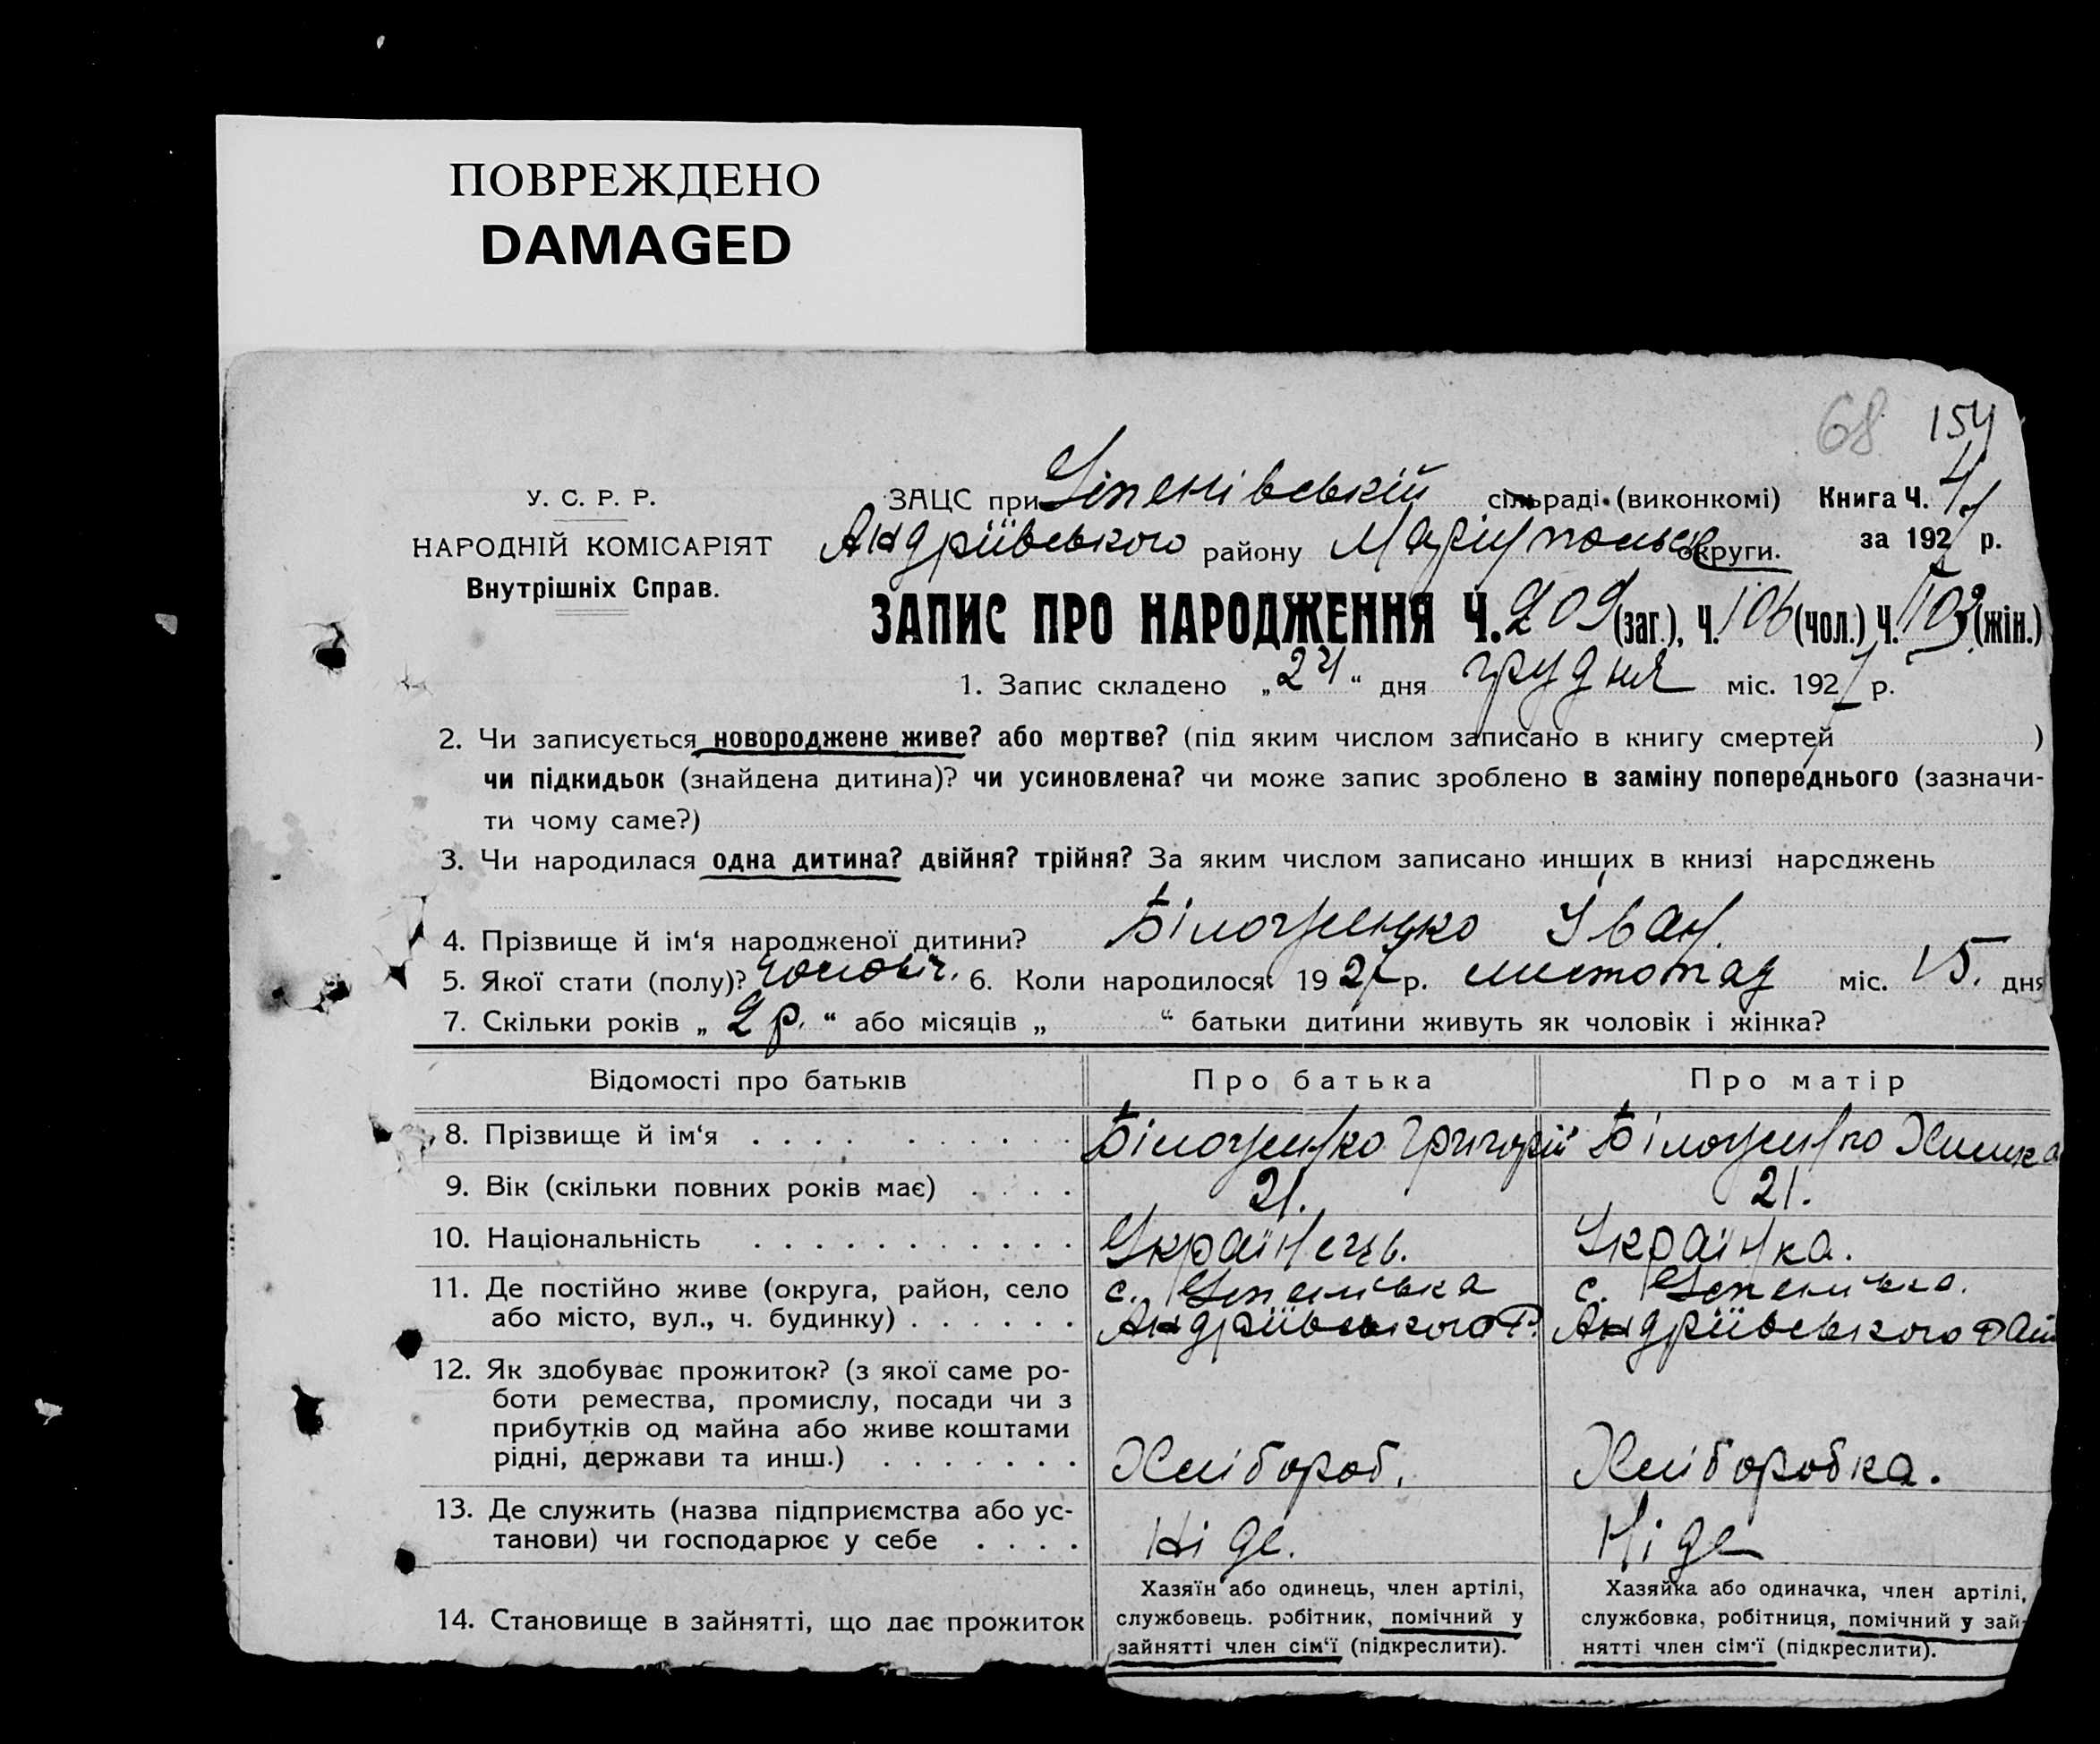 ПОВРЕЖДЕНО
DAMAGED
68 154
У. С. Р. Р.
НАРОДНІЙ КОМІСАРІЯТ
Внутрішніх Справ.
ЗАЦС при Успенівській сільраді (виконкомі) Книга Ч.
Андріївського району Маріупольс округи. за 1927 р.
ЗАПИС ПРО НАРОДЖЕННЯ Ч. 209 (заг.), Ч. 106 (чол.) Ч. 103 (жін.)
1. Запис складено „24“ дня грудня міс. 1927 р.
2. Чи записується новороджене живе? або мертве? (під яким числом записано в книгу смертей )
чи підкидьок (знайдена дитина)? чи усиновлена? чи може запис зроблено в заміну попереднього (зазначи-
ти чому саме?)
3. Чи народилася одна дитина? двійня? трійня? За яким числом записано инших в книзі народжень
4. Прізвище й ім‘я народженої дитини? Іван.
5. Якої стати (полу)? чоловіч. 6. Коли народилося 1927 р. листопад міс. 15. дня
7. Скільки років „ 2 р. “ або місяців „ “ батьки дитини живуть як чоловік і жінка?
Відомості про батьків Про батька Про матір
8. Прізвище й ім‘я Григорій
9. Вік (скільки повних років має) 21. 21.
10. Національність Українець. Українка.
11. Де постійно живе (округа, район, село с. Успенівка с. Успенівка.
або місто, вул., ч. будинку) Андріївського Р. Андріївського рай
12. Як здобуває прожиток? (з якої саме ро-
боти ремества, промислу, посади чи з
прибутків од майна або живе коштами
рідні, держави та инш.) Хлібороб. Хліборобка.
13. Де служить (назва підприємства або ус-
танови) чи господарює у себе Ні де. Ні де
14. Становище в зайнятті, що дає прожиток
Хазяїн або одинець, член артілі,
службовець. робітник, помічний у
зайнятті член сім‘ї (підкреслити).
Хазяйка або одиначка, член артілі,
службовка, робітниця, помічний у зай-
нятті член сім‘ї (підкреслити).